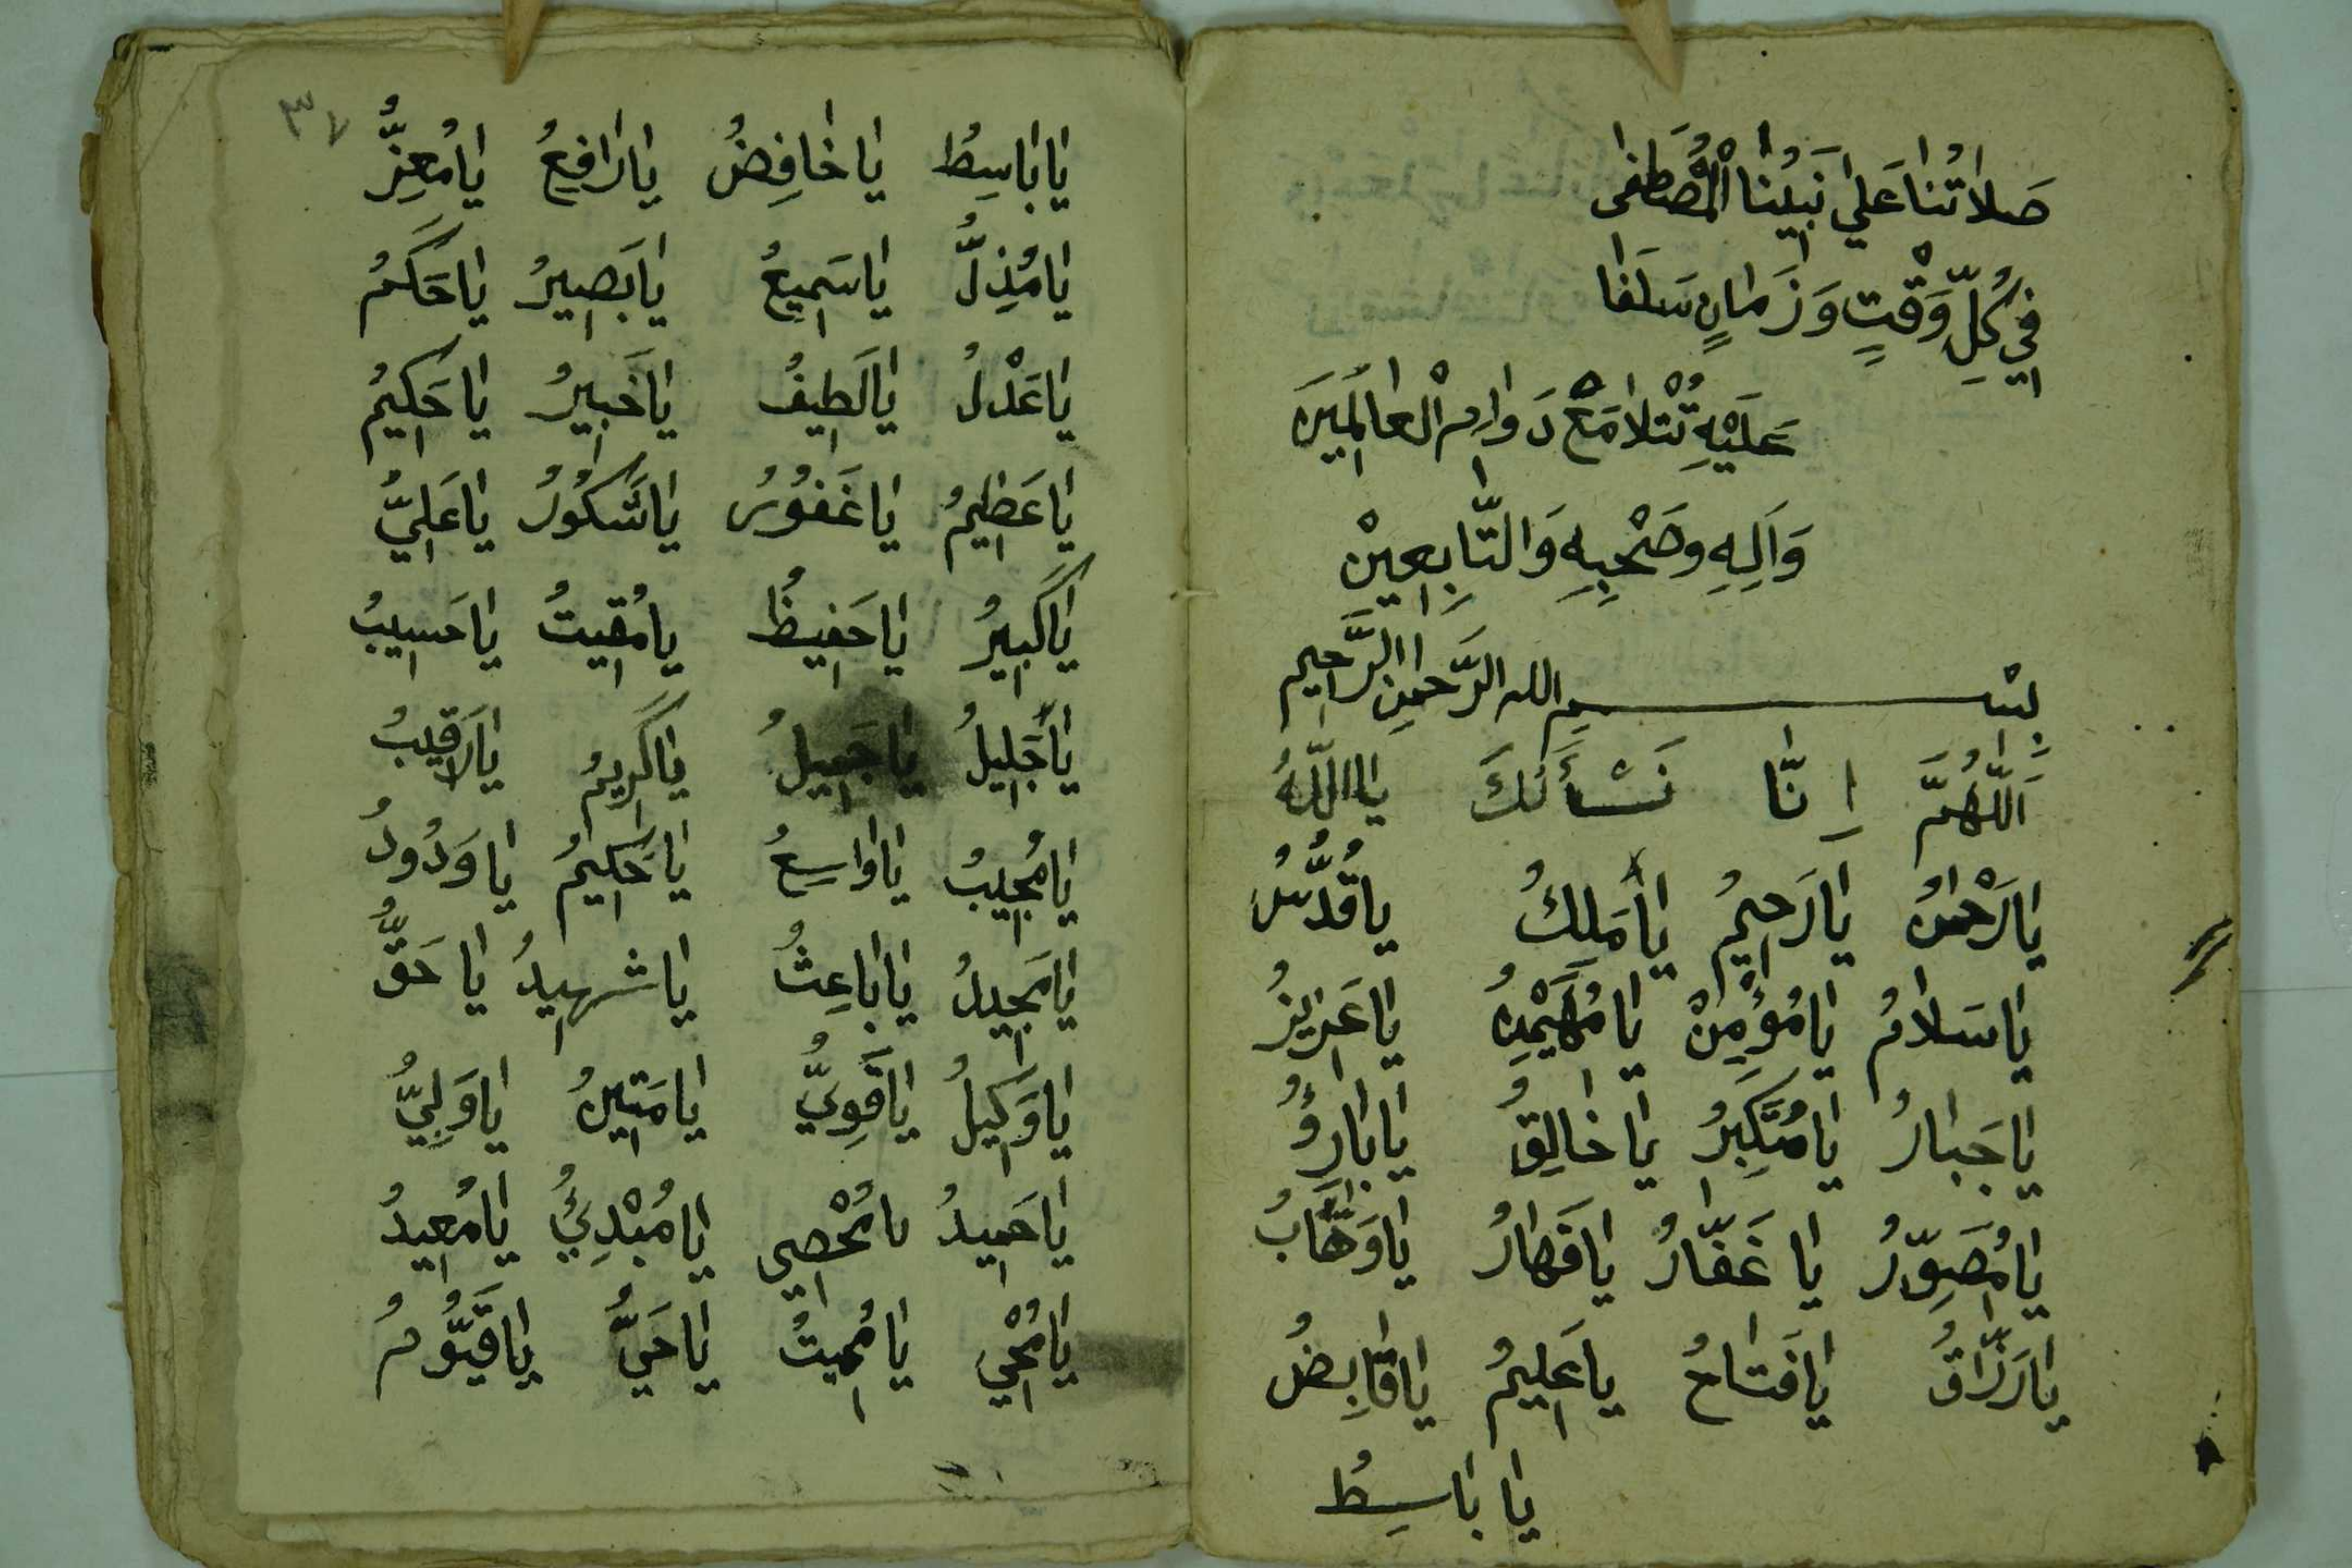 صَلَاتُنَا عَلَى نَبِيِّنَا الْمُصْطَفَى
فِي كُلِّ وَقْتٍ وَزَمَانٍ سَلَفَا
عَلَيْهِ تُتْلَا مَعْ دَوَامِ الْعَالَمِينَ
وَآلِهِ وَصَحْبِهِ وَالتَّابِعِينْ
بِسْمِ الله الرَّحْمَنِ الرَّحِيمِ
اَللَّهُمَّ اِنَّا نَسْأَلُكَ يَا اللَّهُ
يَا رَحْمٰنُ يَا رَحِيمُ يَا مَلِكُ يَا قُدُّسُ
يَا سَلَامُ يَا مُؤْمِنْ يَا مُهَيْمِنُ يَا عَزِيزُ
يَا جَبَارُ يَا مُتَكَبِّرُ يَا خَالِقُ يَا بَارِؤُ
يَا مُصَوِّرُ يَا غَفَّارُ يَا قَهَارُ يَا وَهَّابُ
يَا رَزَّاقُ يَا فَتَاحُ يَا عَلِيمُ يَا قَابِضُ
يَا بَاسِطُ
٣٧
يَا بَاسِطُ يَا خَافِضُ يَا رَافِعُ يَا مُعِزُّ
يَا مُذِلُّ يَا سَمِيعُ يَا بَصِيرُ يَا حَكَمُ
يَا عَدْلُ يَا لَطِيفُ يَا خَبِيرُ يَا حَكِيمُ
يَا عَظِيمُ يَا غَفُوْرُ يَا شَكُوْرُ يَا عَلِيُّ
يَا كَبِيرُ يَا حَفِيظُ يَا مُقِيتُ يَا حَسِيبُ
يَا جَلِيلُ يَا جَمِيلُ يَا كَرِيمُ يَا رَقِيبُ
يَا مُجِيبُ يَا وَاسِعُ يَا حَكِيمُ يَا وَدُودُ
يَا مَجِيدُ يَا بَاعِثُ يَا شَهِيدُ يَا حَقُّ
يَا وَكِيلُ يَا قَوِيُّ يَا مَتِينُ يَا وَلِيُّ
يَا حَمِيدُ يَا مُحْصِي يَا مُبْدِئُ يَا مُعِيدُ
يَا مُحْيِ يَا مُمِيتُ يَا حَيُّ يَا قَيُّومُ